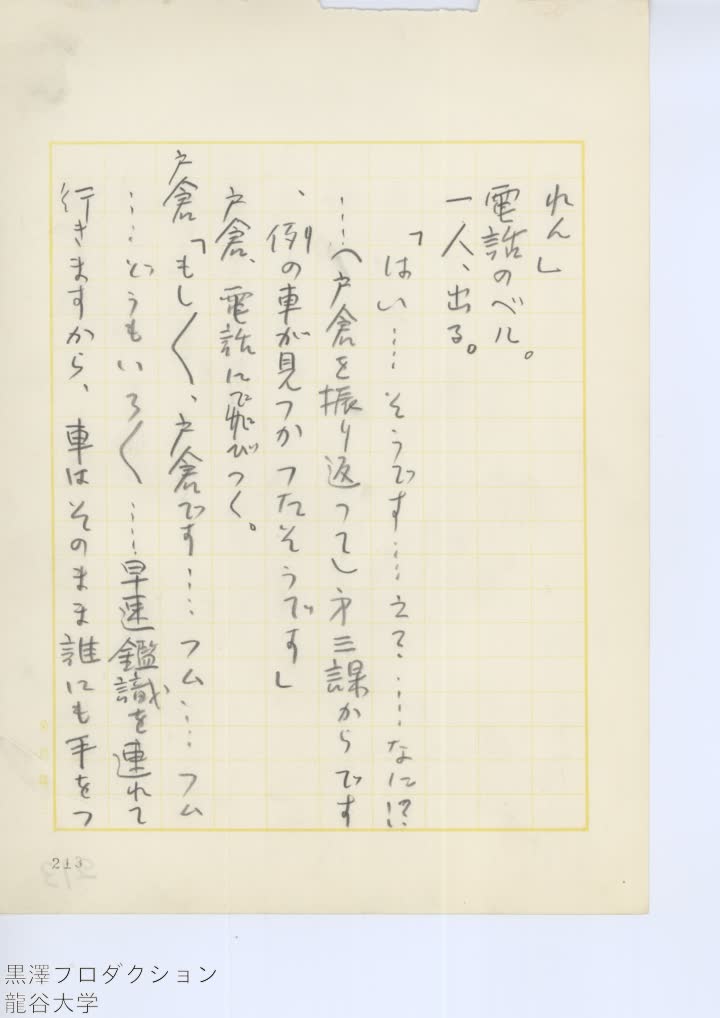 れん」
電話のベル。
一人、出る。
「はい……そうです……えて……なに!?
……(戸倉を振り返つて)才三課からです
、例の車が見つかつたそうです」
戸倉、電話に飛びつく。
戸倉「もし〱、戸倉です……フム……フム
……どうもいろ〱……早速鑑識を連れて
行きますから、車はそのまま誰にも手をつ
213
黒澤プロダクション
龍谷大学